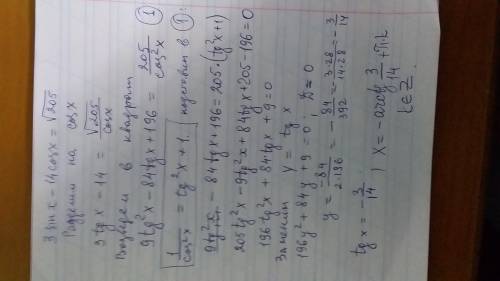 3 sin x - 14 cos x = √205
Разделим на cos x
3 tg x - 14 = √205 / cos x
Возведем в квадрат
9 tg²x - 84 tg x + 196 = 205 / cos²x ①
1 / cos²x = tg²x + 1... подставим в ①:
9 tg²x - 84 tg x + 196 = 205·(tg²x + 1)
205 tg²x - 9 tg²x + 84 tg x + 205 - 196 = 0
196 tg²x + 84 tg x + 9 = 0
Заменим y = tg x
196y² + 84y + 9 = 0; D = 0
y = -84 / 2·196 = - 84 / 392 = - 3·28 / 14·28 = - 3 / 14
tg x = - 3 / 14 ) x = - arctg 3 / 14 + π·k
k ∈ Z